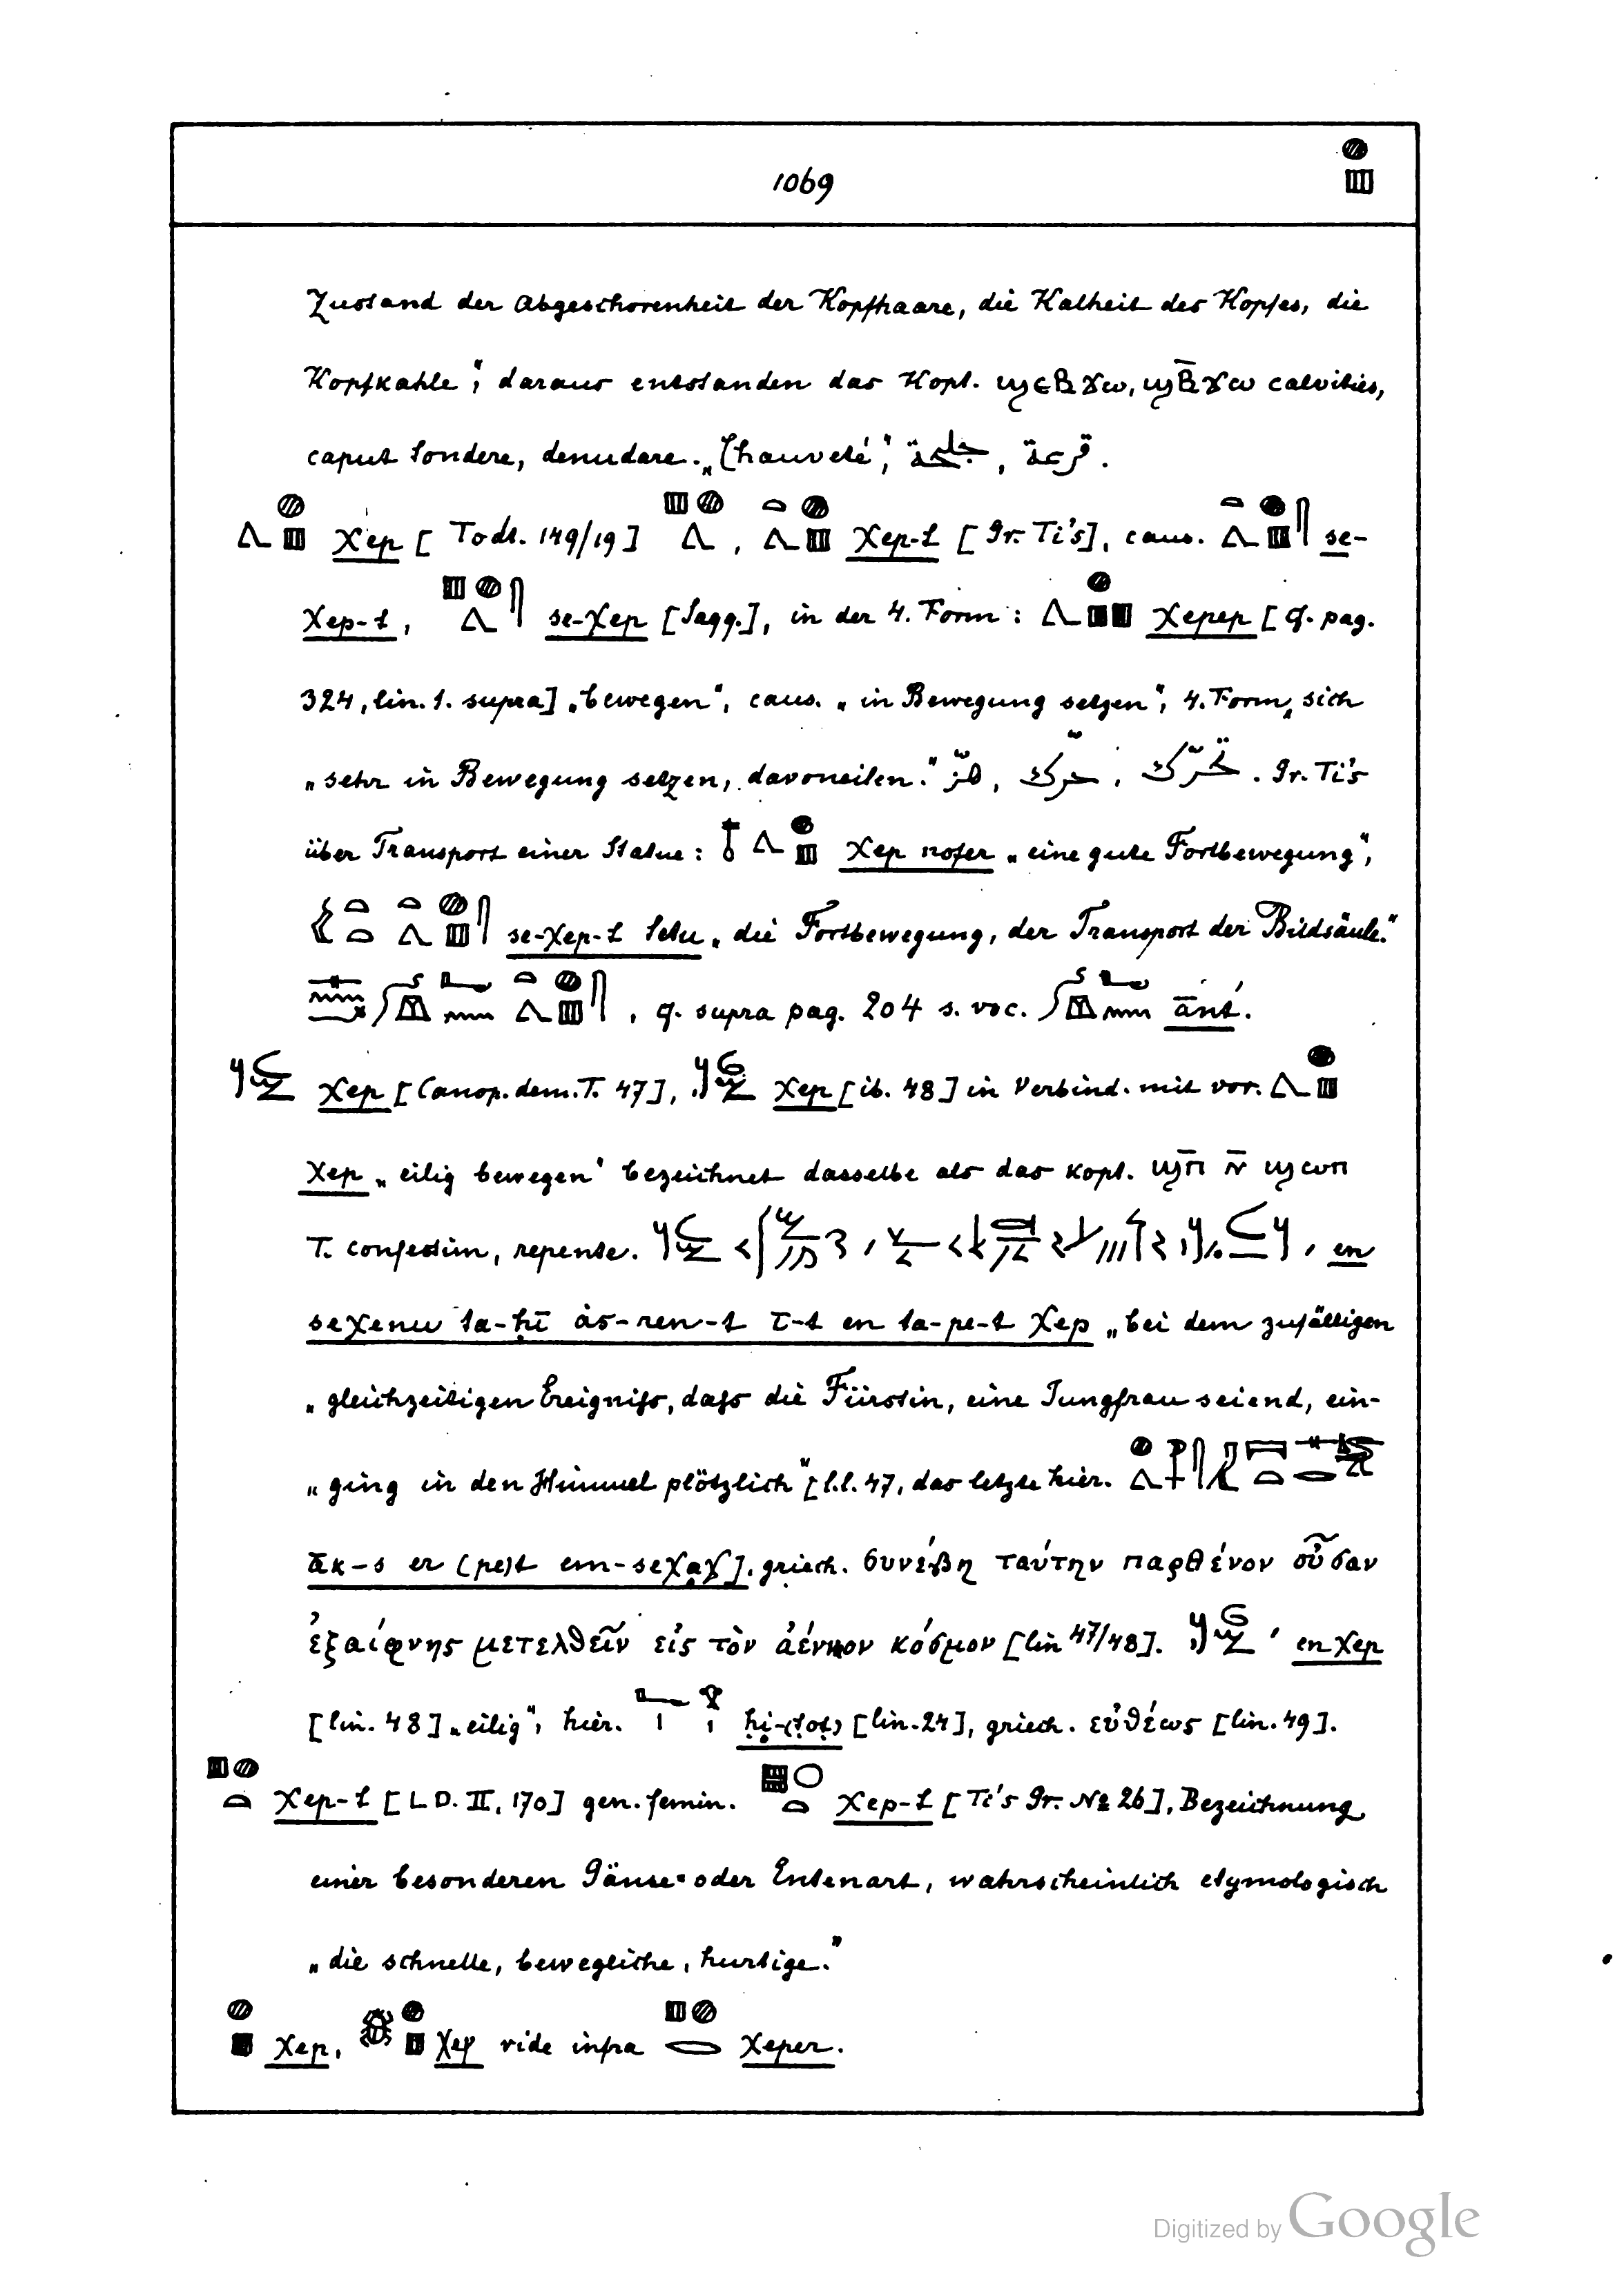 1069 𓐍𓊪
Zustand der Abgeschorenheit der Kopfhaare, die Kalheit des Kopfes, die
Kopfkahle“; daraus entstanden das Kopt. ϣⲉⲃϫⲱ, ϣⲃ̄ϫⲱ calvities,
caput tondere, denudare. „Chauveté“, جلحة, قرعة.
𓐍𓊪𓂻 χep [Todt. 149/19] 𓐍𓊪𓂻, 𓐍𓊪𓏏𓂻 χep-t [Gr. Ti's], caus. 𓋴𓐍𓊪𓏏𓂻 se-
χep-t, 𓋴𓐍𓊪𓂻 se-χep [Sagg.], in der 4. Form: 𓐍𓊪𓊪𓂻 χepep [cf. pag.
324, lin. 1. supra] „bewegen“, caus. „in Bewegung setzen“, 4. Form „sich
„sehr in Bewegung setzen, davoneilen.“ هزّ, حرّك, تحرّك. Gr. Ti's
über Transport einer Statue: 𓐍𓊪𓂻𓄤 χep nofer „eine gute Fortbewegung“,
se-χep-t tetu „die Fortbewegung, der Transport der Bildsäule.“
, cf. supra pag. 204 s. voc. ānt́.
χep [Canop. dem. T. 47], χep [ib. 48] in Verbind. mit vor. 𓐍𓊪𓂻
χep „eilig bewegen“ bezeichnet dasselbe als das kopt. ϣⲡ̄ ⲛ̄ ϣⲱⲡ
T. confestim, repente. en
seχenu ta-ḥī ȧs-ren-t ī-t en ta-pe-t χep „bei dem zufälligen
„gleichzeitigen Ereigniſs, daſs die Fürstin, eine Jungfrau seiend, ein-
„ging in den Himmel plötzlich“ [l.l. 47, das letzte hier.
āk-s er (pe)t em-seχaχ]. griech. συνέβη ταύτην παρθένον οὖσαν
ἐξαίφνης μετελθεῖν εἰς τὸν ἀένναον κόσμον [lin 47/48]. en χep
[lin. 48] „eilig“, hier. ḥi-(tot) [lin. 24], griech. εὐθέως [lin. 49].
𓐍𓊪𓏏 χep-t [LD. II, 170] gen. femin. χep-t [Ti's Gr. № 26], Bezeichnung
einer besonderen Gänse- oder Entenart, wahrscheinlich etymologisch
„die schnelle, bewegliche, hurtige.“
𓐍𓊪 χep, 𓐍𓊪𓆣 χep vide infra 𓐍𓊪𓂋 χeper.
Digitized by Google